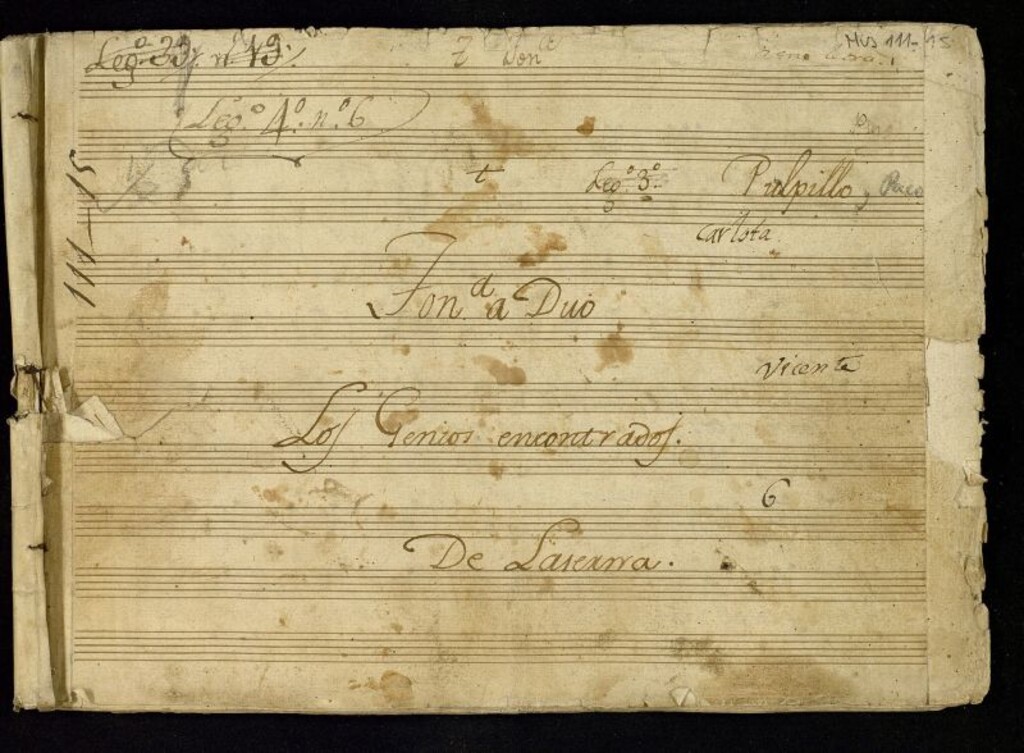 Leg.º 33. nº 19.
Mus 111-15
Leg.º 4º. n.º 6
111-15
t Leg.º 3º. Pulpillo, Paco
Carlota
Ton.d a Duo
Vicente
Los Genios encontrados.
6
De Laserna.